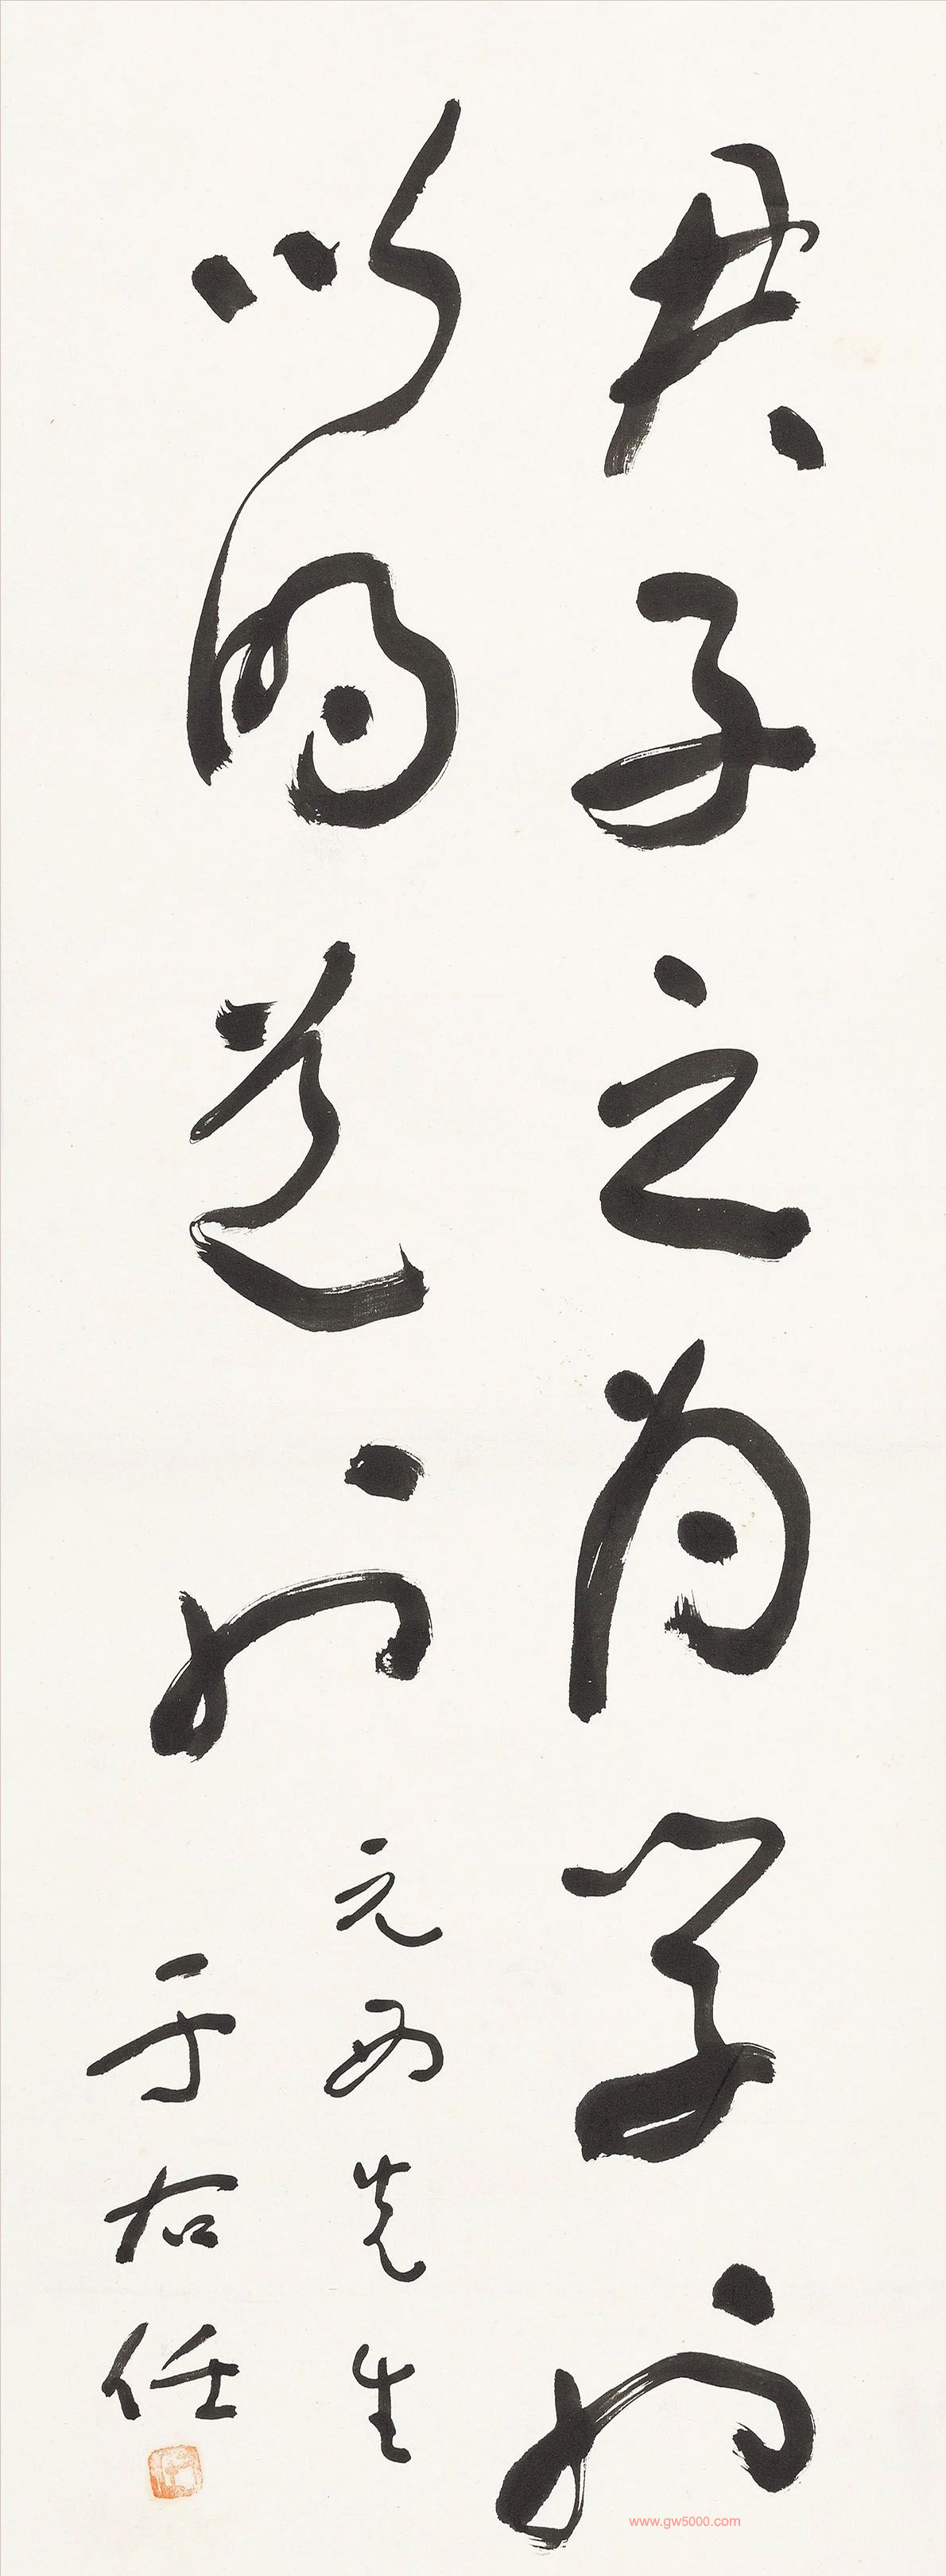 君子之為學也
以明道也
元 先生
于右任
www.gw5000.com